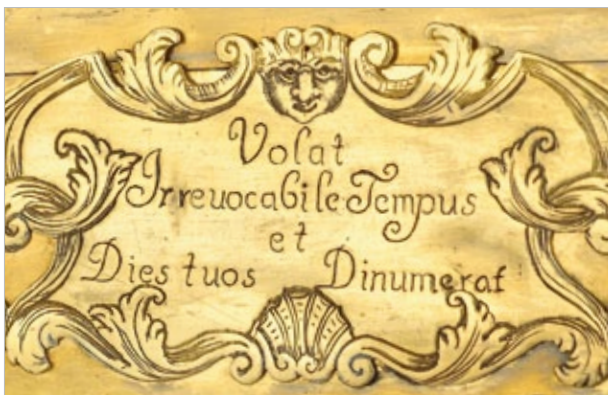 Volat
Irreuocabile Tempus
et
Dies tuos Dinumerat